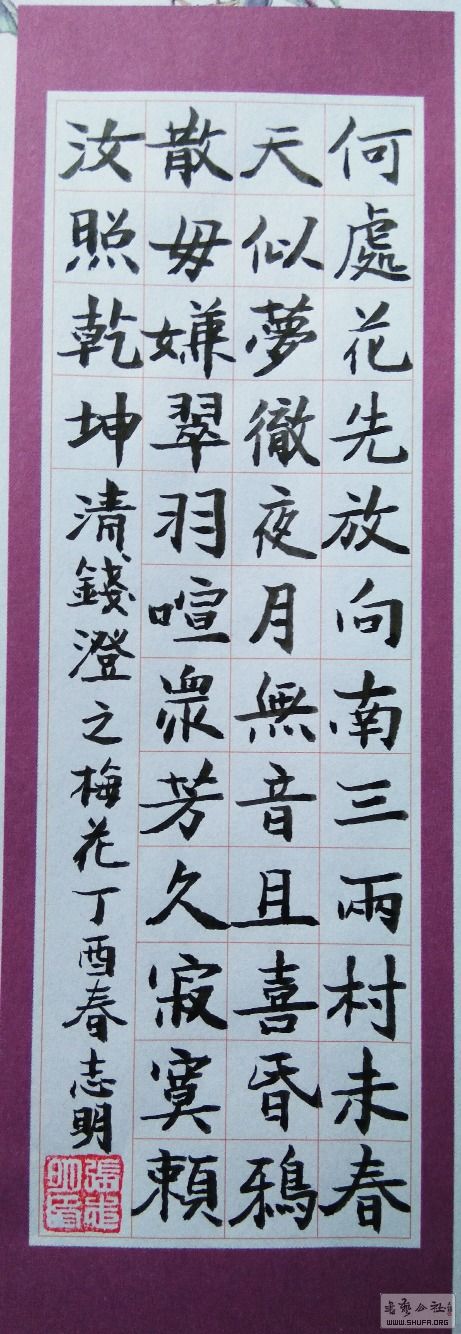 何處花先放向南三兩村未春
天似夢徹夜月無音且喜昏鴉
散毋嫌翠羽喧眾芳久寂寞賴
汝照乾坤
清錢澄之梅花丁酉春志明
書藝公社
WWW.SHUFA.ORG